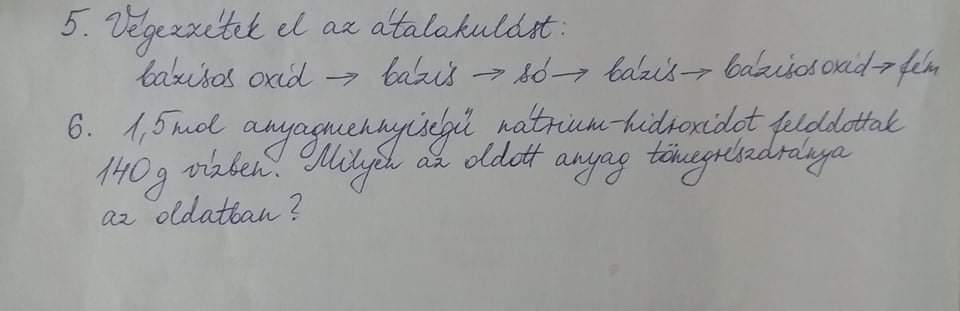 5. Végezzétek el az átalakulást:
bázisos oxid → bázis → só → bázis → bázisos oxid → fém
6. 1,5 mol anyagmennyiségű nátrium-hidroxidot felddottak
140 g vízben. Milyen az oldott anyag tömegrészaránya
az oldatban?